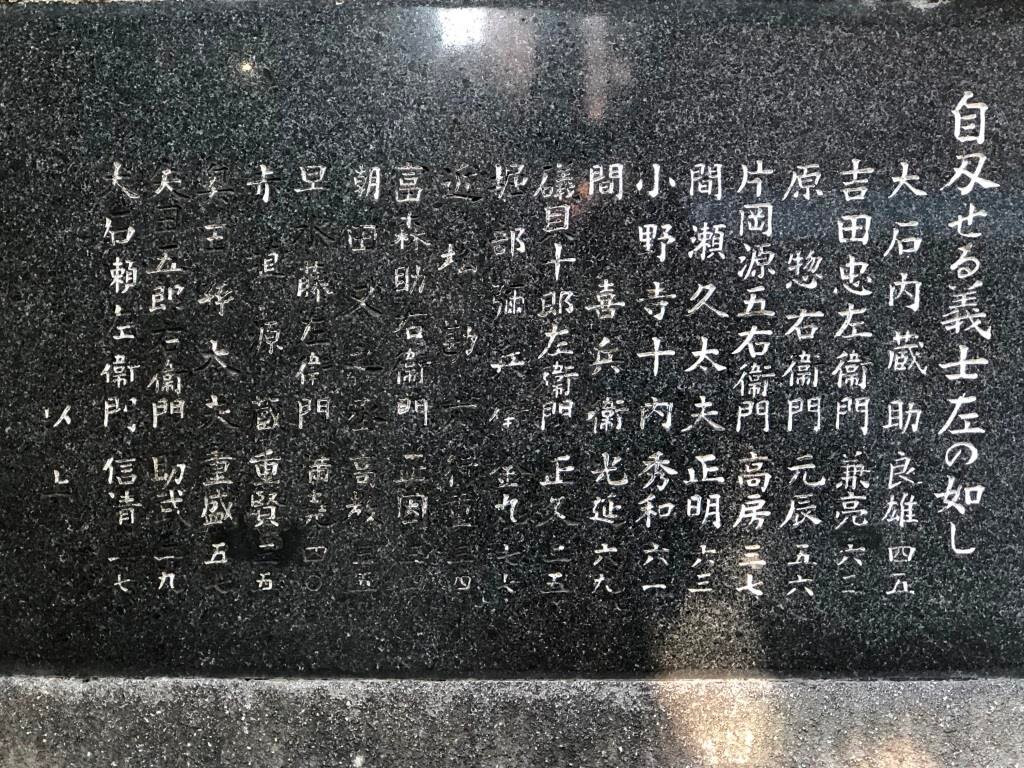 自刃せる義士左の如し
大石内蔵助 良雄 四五
吉田忠左衛門 兼亮 六二
原惣右衛門 元辰 五六
片岡源五右衛門 高房 三七
間瀬久太夫 正明 六三
小野寺十内 秀和 六一
間喜兵衛 光延 六九
礒貝十郎左衛門 正久 二五
堀部彌兵衛 金丸 七七
近松勘六 行重 三四
富森助右衛門 正因 三四
潮田又之丞 高教 三五
早水藤左衛門 満尭 四〇
赤垣源蔵 重賢 三五
奥田孫太夫 重盛 五七
矢田五郎右衛門 助武 二九
大石瀬左衛門 信清 二七
以上